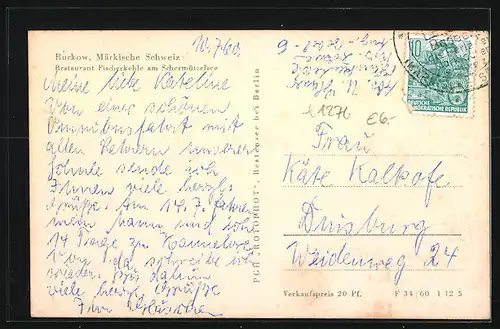 Buckow, Märkische Schweiz
Restaurant Fischerkehle am Schermützelsee
10.7.60.
Meine liebe Kateline
Von einer schönen
Omnibusfahrt mit
allen Lehrern unserer
Schule sende ich
Ihnen viele herzl.
Grüße. Am 14.7. fahren
mein Mann und ich
14 Tage zu Hannelore
Von da schreibe ich
wieder. Bis dahin
viele herzl. Grüße
Ihre
PGH „ROTOPHOT“, Bestensee bei Berlin
10
DEUTSCHE
DEMOKRATISCHE REPUBLIK
1276
€6.-
Frau
Käte Kalkofe
Duisburg
Weidenweg 24
Verkaufspreis 20 Pf.
F 34/60 1 12 5